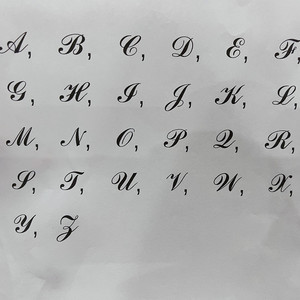 A, B, C, D, E, F,
G, H, I, J, K, L,
M, N, O, P, Q, R,
S, T, U, V, W, X,
Y, Z